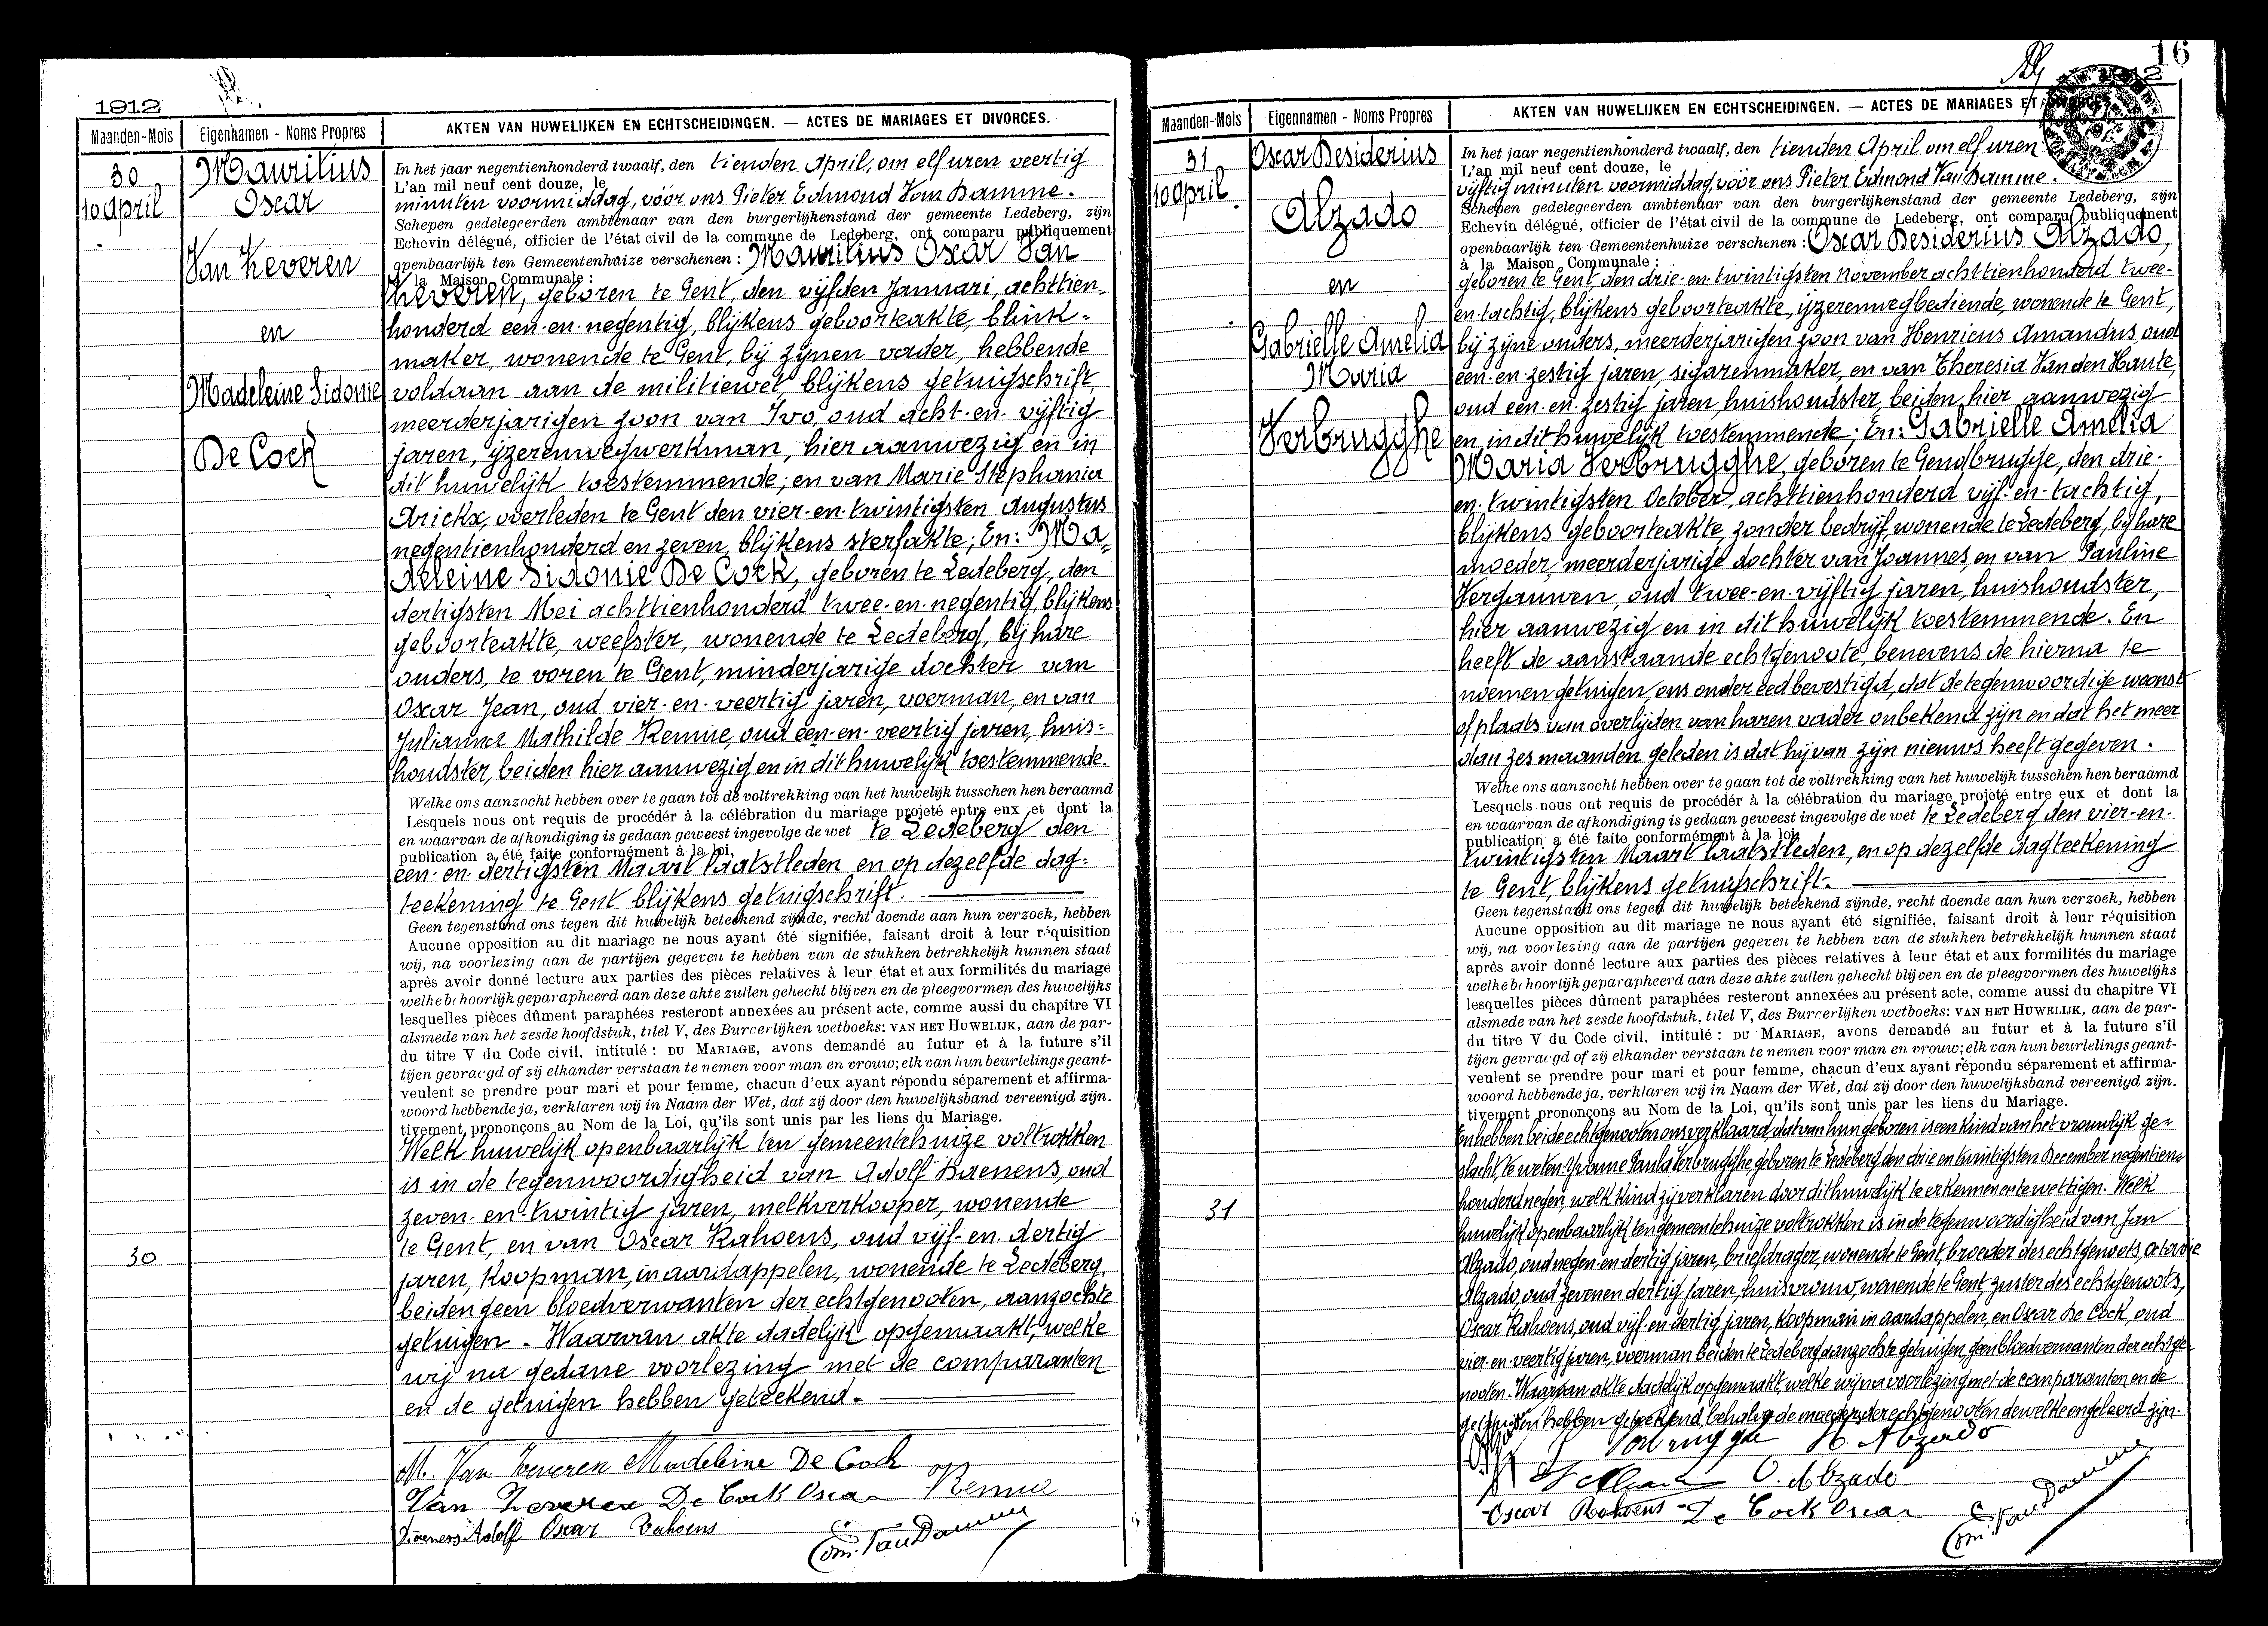 1912
Maanden-Mois
Eigennamen - Noms Propres
AKTEN VAN HUWELIJKEN EN ECHTSCHEIDINGEN. — ACTES DE MARIAGES ET DIVORCES.
30
10 April
Maurilius
Oscar
Van Keveren
en
Madeleine Sidonie
De Cock
In het jaar negentienhonderd twaalf, den tienden April, om elf uren veertig
L'an mil neuf cent douze, le
minuten voormiddag, vóór ons Pieter Edmond Van Damme.
Schepen gedelegeerden ambtenaar van den burgerlijkenstand der gemeente Ledeberg, zijn
Echevin délégué, officier de l'état civil de la commune de Ledeberg, ont comparu publiquement
openbaarlijk ten Gemeentenhuize verschenen : Maurilius Oscar Van
à la Maison Communale :
Keveren, geboren te Gent, den vijfden Januari, achttien-
honderd een-en-negentig, blijkens geboorteakte, blink-
maker, wonende te Gent, bij zijnen vader, hebbende
voldaan aan de militiewet blijkens getuigschrift,
meerderjarigen zoon van Ivo, oud acht-en-vijftig
jaren, ijzerenwegwerkman, hier aanwezig en in
dit huwelijk toestemmende; en van Marie Stephania
Arickx, overleden te Gent den vier-en-twintigsten Augustus
negentienhonderd en zeven, blijkens sterfakte; En: Ma-
deleine Sidonie De Cock, geboren te Ledeberg, den
dertigsten Mei achttienhonderd twee-en-negentig, blijkens
geboorteakte, weefster, wonende te Ledeberg, bij hare
ouders, te voren te Gent, minderjarige dochter van
Oscar Jean, oud vier-en-veertig jaren, voerman, en van
Julianna Mathilde Remue, oud een-en-veertig jaren, huis-
houdster, beiden hier aanwezig en in dit huwelijk toestemmende.
Welke ons aanzocht hebben over te gaan tot de voltrekking van het huwelijk tusschen hen beraamd
Lesquels nous ont requis de procédér à la célébration du mariage projeté entre eux et dont la
en waarvan de afkondiging is gedaan geweest ingevolge de wet te Ledeberg den
publication a été faite conformément à la loi,
een-en-dertigsten Maart laatstleden en op dezelfde dag-
teekening te Gent blijkens getuigschrift.
Geen tegenstand ons tegen dit huwelijk beteekend zijnde, recht doende aan hun verzoek, hebben
Aucune opposition au dit mariage ne nous ayant été signifiée, faisant droit à leur réquisition
wij, na voorlezing aan de partijen gegeven te hebben van de stukken betrekkelijk hunnen staat
après avoir donné lecture aux parties des pièces relatives à leur état et aux formilités du mariage
welke behoorlijk geparapheerd aan deze akte zullen gehecht blijven en de pleegvormen des huwelijks
lesquelles pièces dûment paraphées resteront annexées au présent acte, comme aussi du chapitre VI
alsmede van het zesde hoofdstuk, titel V, des Burgerlijken wetboeks: VAN HET HUWELIJK, aan de par-
du titre V du Code civil, intitulé : DU MARIAGE, avons demandé au futur et à la future s'il
tijen gevraagd of zij elkander verstaan te nemen voor man en vrouw; elk van hun beurtelings geant-
veulent se prendre pour mari et pour femme, chacun d'eux ayant répondu séparement et affirma-
woord hebbende ja, verklaren wij in Naam der Wet, dat zij door den huwelijksband vereenigd zijn.
tivement prononçons au Nom de la Loi, qu'ils sont unis par les liens du Mariage.
Welk huwelijk openbaarlijk ten gemeentehuize voltrokken
is in de tegenwoordigheid van Adolf Daenens, oud
zeven-en-twintig jaren, melkverkooper, wonende
te Gent, en van Oscar Rahoens, oud vijf-en-dertig
30
jaren, koopman in aardappelen, wonende te Ledeberg
beiden geen bloedverwanten der echtgenooten, aanzochte
getuigen. Waarvan akte dadelijk opgemaakt, welke
wij na gedane voorlezing met de comparanten
en de getuigen hebben geteekend.
M. Van Keveren Madeleine De Cock
Van Keveren De Cock Oscar Remue
Daenens Adolf Oscar Rahoens
Edm. Van Damme
16
1912
Maanden-Mois
Eigennamen - Noms Propres
AKTEN VAN HUWELIJKEN EN ECHTSCHEIDINGEN. — ACTES DE MARIAGES ET DIVORCES.
31
10 April
Oscar Desiderius
Alzado
en
Gabrielle Amelia
Maria
Verbrugghe
In het jaar negentienhonderd twaalf, den tienden April om elf uren
L'an mil neuf cent douze, le
vijftig minuten voormiddag vóór ons Pieter Edmond Van Damme.
Schepen gedelegeerden ambtenaar van den burgerlijkenstand der gemeente Ledeberg, zijn
Echevin délégué, officier de l'état civil de la commune de Ledeberg, ont comparu publiquement
openbaarlijk ten Gemeentenhuize verschenen : Oscar Desiderius Alzado,
à la Maison Communale :
geboren te Gent, den drie-en-twintigsten November achttienhonderd twee-
en-tachtig, blijkens geboorteakte, ijzerenwegbediende, wonende te Gent,
bij zijne ouders, meerderjarigen zoon van Henricus Amandus, oud
een-en-zestig jaren, sigarenmaker, en van Theresia Van den Haute,
oud een-en-zestig jaren, huishoudster, beiden hier aanwezig
en in dit huwelijk toestemmende; En: Gabrielle Amelia
Maria Verbrugghe, geboren te Gendbrugge, den drie-
en-twintigsten October, achttienhonderd vijf-en-tachtig,
blijkens geboorteakte, zonder bedrijf, wonende te Ledeberg, bij hare
moeder, meerderjarige dochter van Joannes, en van Pauline
Vergauwen, oud twee-en-vijftig jaren, huishoudster,
hier aanwezig en in dit huwelijk toestemmende. En
heeft de aanstaande echtgenoote, benevens de hierna te
noemen getuigen, ons onder eed bevestigd, dat de tegenwoordige woonst
of plaats van overlijden van haren vader onbekend zijn en dat het meer
dan zes maanden geleden is dat hij van zijn nieuws heeft gegeven.
Welke ons aanzocht hebben over te gaan tot de voltrekking van het huwelijk tusschen hen beraamd
Lesquels nous ont requis de procédér à la célébration du mariage projeté entre eux et dont la
en waarvan de afkondiging is gedaan geweest ingevolge de wet te Ledeberg den vier-en-
publication a été faite conformément à la loi,
twintigsten Maart laatstleden, en op dezelfde dagteekening
te Gent, blijkens getuigschrift.
Geen tegenstand ons tegen dit huwelijk beteekend zijnde, recht doende aan hun verzoek, hebben
Aucune opposition au dit mariage ne nous ayant été signifiée, faisant droit à leur réquisition
wij, na voorlezing aan de partijen gegeven te hebben van de stukken betrekkelijk hunnen staat
après avoir donné lecture aux parties des pièces relatives à leur état et aux formilités du mariage
welke behoorlijk geparapheerd aan deze akte zullen gehecht blijven en de pleegvormen des huwelijks
lesquelles pièces dûment paraphées resteront annexées au présent acte, comme aussi du chapitre VI
alsmede van het zesde hoofdstuk, titel V, des Burgerlijken wetboeks: VAN HET HUWELIJK, aan de par-
du titre V du Code civil, intitulé : DU MARIAGE, avons demandé au futur et à la future s'il
tijen gevraagd of zij elkander verstaan te nemen voor man en vrouw; elk van hun beurtelings geant-
veulent se prendre pour mari et pour femme, chacun d'eux ayant répondu séparement et affirma-
woord hebbende ja, verklaren wij in Naam der Wet, dat zij door den huwelijksband vereenigd zijn.
tivement prononçons au Nom de la Loi, qu'ils sont unis par les liens du Mariage.
En hebben beide echtgenooten ons verklaard, dat van hun geboren is een kind van het vrouwlijk ge-
slacht, te weten: Yvonne Paula Verbrugghe geboren te Ledeberg den drie en twintigsten December negentien-
honderd negen, welk kind zij verklaren door dit huwelijk te erkennen en te wettigen. Welk
31
huwelijk openbaarlijk ten gemeentehuize voltrokken is in de tegenwoordigheid van Jan
Alzado, oud negen-en-dertig jaren, briefdrager, wonende te Gent, broeder des echtgenoots, Octavie
Alzado, oud zeven en dertig jaren, huisvrouw, wonende te Gent, zuster des echtgenoots,
Oscar Rahoens, oud vijf-en-dertig jaren, koopman in aardappelen, en Oscar De Cock, oud
vier-en-veertig jaren, voerman beiden te Ledeberg aanzochte getuigen, geen bloedverwanten der echtge-
nooten. Waarvan akte dadelijk opgemaakt, welke wij na voorlezing met de comparanten en de
getuigen hebben geteekend, behalve de moeders der echtgenooten dewelke ongeleerd zijn.
Verbrugghe H. Alzado
O. Alzado
Oscar Rahoens De Cock Oscar
Edm. Van Damme